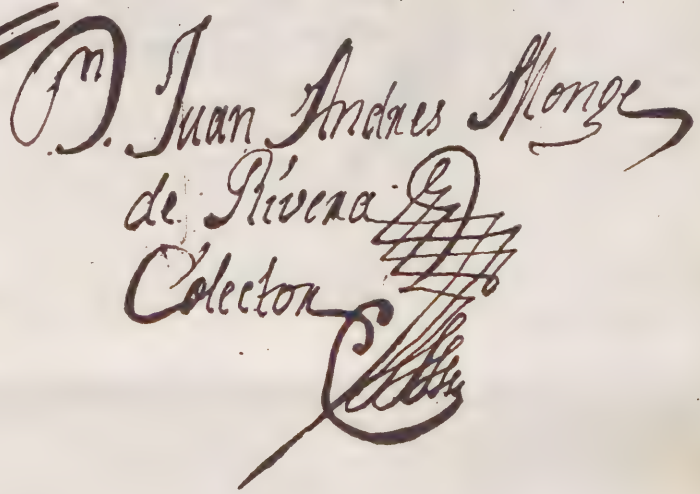 Dn. Juan Andres Monge
de Rivera
Colector